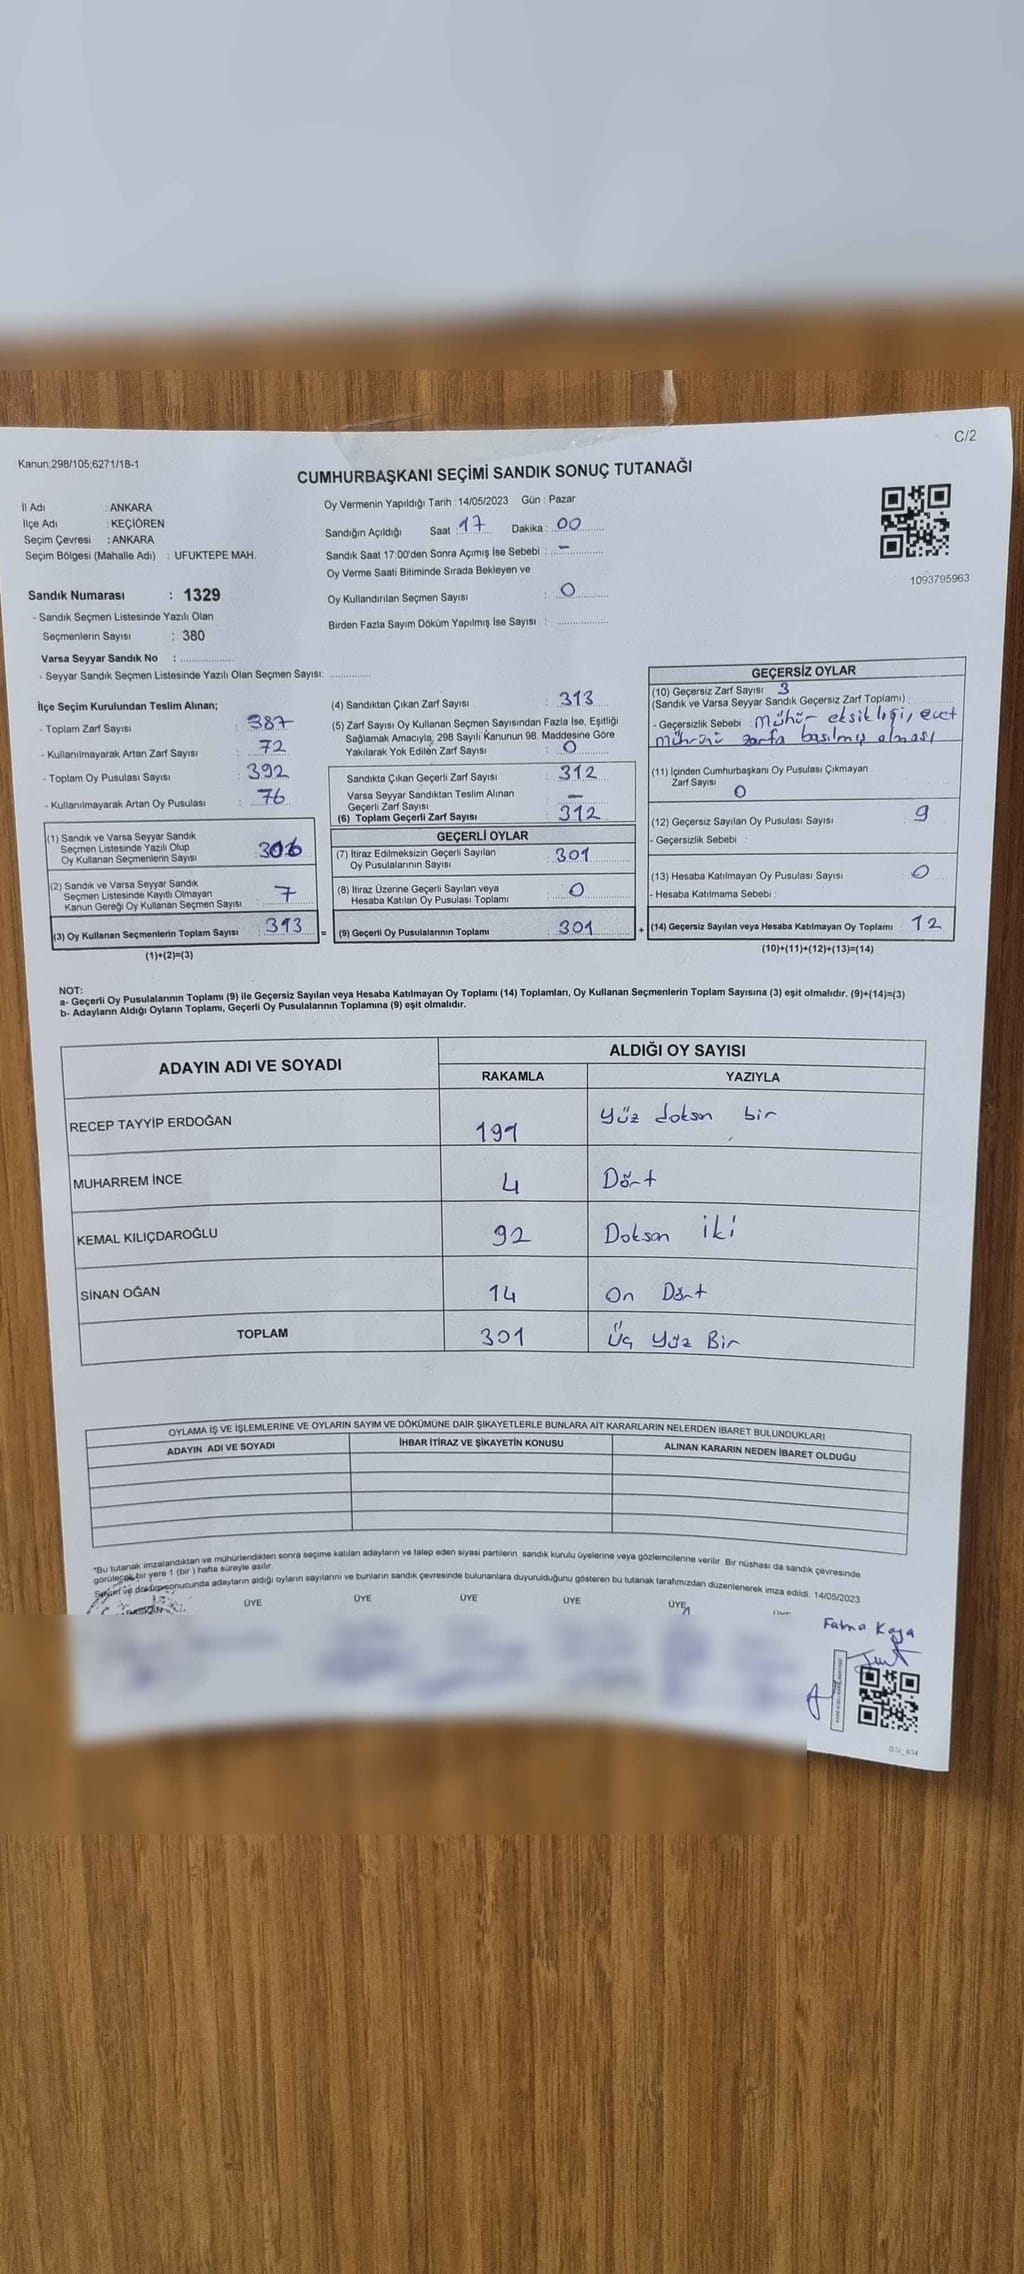 C/2
Kanun;298/105;6271/18-1
CUMHURBAŞKANI SEÇİMİ SANDIK SONUÇ TUTANAĞI
İl Adı : ANKARA
İlçe Adı : KEÇİÖREN
Seçim Çevresi : ANKARA
Seçim Bölgesi (Mahalle Adı) : UFUKTEPE MAH.
Oy Vermenin Yapıldığı Tarih : 14/05/2023 Gün : Pazar
Sandığın Açıldığı Saat 17 Dakika : 00
Sandık Saat 17:00'den Sonra Açımış İse Sebebi : -
Oy Verme Saati Bitiminde Sırada Bekleyen ve
Oy Kullandırılan Seçmen Sayısı : 0
Birden Fazla Sayım Döküm Yapılmış İse Sayısı :
1093795963
Sandık Numarası : 1329
- Sandık Seçmen Listesinde Yazılı Olan
Seçmenlerin Sayısı : 380
Varsa Seyyar Sandık No :
- Seyyar Sandık Seçmen Listesinde Yazılı Olan Seçmen Sayısı:
İlçe Seçim Kurulundan Teslim Alınan;
- Toplam Zarf Sayısı : 387
- Kullanılmayarak Artan Zarf Sayısı : 72
- Toplam Oy Pusulası Sayısı : 392
- Kullanılmayarak Artan Oy Pusulası : 76
(1) Sandık ve Varsa Seyyar Sandık
Seçmen Listesinde Yazılı Olup
Oy Kullanan Seçmenlerin Sayısı : 306
(2) Sandık ve Varsa Seyyar Sandık
Seçmen Listesinde Kayıtlı Olmayan
Kanun Gereği Oy Kullanan Seçmen Sayısı : 7
(3) Oy Kullanan Seçmenlerin Toplam Sayısı : 313 =
(1)+(2)=(3)
(4) Sandıktan Çıkan Zarf Sayısı : 313
(5) Zarf Sayısı Oy Kullanan Seçmen Sayısından Fazla İse, Eşitliği
Sağlamak Amacıyla; 298 Sayılı Kanunun 98. Maddesine Göre
Yakılarak Yok Edilen Zarf Sayısı : 0
Sandıkta Çıkan Geçerli Zarf Sayısı : 312
Varsa Seyyar Sandıktan Teslim Alınan
Geçerli Zarf Sayısı : -
(6) Toplam Geçerli Zarf Sayısı : 312
GEÇERLİ OYLAR
(7) İtiraz Edilmeksizin Geçerli Sayılan
Oy Pusulalarının Sayısı : 301
(8) İtiraz Üzerine Geçerli Sayılan veya
Hesaba Katılan Oy Pusulası Toplamı : 0
(9) Geçerli Oy Pusulalarının Toplamı : 301 +
GEÇERSİZ OYLAR
(10) Geçersiz Zarf Sayısı 3
(Sandık ve Varsa Seyyar Sandık Geçersiz Zarf Toplamı) :
- Geçersizlik Sebebi : Mühür eksikliği, evet
mührünü zarfa basılmış olması
(11) İçinden Cumhurbaşkanı Oy Pusulası Çıkmayan
Zarf Sayısı : 0
(12) Geçersiz Sayılan Oy Pusulası Sayısı : 9
- Geçersizlik Sebebi :
(13) Hesaba Katılmayan Oy Pusulası Sayısı : 0
- Hesaba Katılmama Sebebi :
(14) Geçersiz Sayılan veya Hesaba Katılmayan Oy Toplamı : 12
(10)+(11)+(12)+(13)=(14)
NOT:
a- Geçerli Oy Pusulalarının Toplamı (9) ile Geçersiz Sayılan veya Hesaba Katılmayan Oy Toplamı (14) Toplamları, Oy Kullanan Seçmenlerin Toplam Sayısına (3) eşit olmalıdır. (9)+(14)=(3)
b- Adayların Aldığı Oyların Toplamı, Geçerli Oy Pusulalarının Toplamına (9) eşit olmalıdır.
ADAYIN ADI VE SOYADI
ALDIĞI OY SAYISI
RAKAMLA YAZIYLA
RECEP TAYYİP ERDOĞAN 191 Yüz doksan bir
MUHARREM İNCE 4 Dört
KEMAL KILIÇDAROĞLU 92 Doksan iki
SİNAN OĞAN 14 On Dört
TOPLAM 301 Üç Yüz Bir
OYLAMA İŞ VE İŞLEMLERİNE VE OYLARIN SAYIM VE DÖKÜMÜNE DAİR ŞİKAYETLERLE BUNLARA AİT KARARLARIN NELERDEN İBARET BULUNDUKLARI
ADAYIN ADI VE SOYADI İHBAR İTİRAZ VE ŞİKAYETİN KONUSU ALINAN KARARIN NEDEN İBARET OLDUĞU
*Bu tutanak imzalandıktan ve mühürlendikten sonra seçime katılan adayların ve talep eden siyasi partilerin sandık kurulu üyelerine veya gözlemcilerine verilir. Bir nüshası da sandık çevresinde
görülecek bir yere 1 (bir ) hafta süreyle asılır.
Sayım ve döküm sonucunda adayların aldığı oyların sayılarını ve bunların sandık çevresinde bulunanlara duyurulduğunu gösteren bu tutanak tarafımızdan düzenlenerek imza edildi. 14/05/2023
BAŞKAN ÜYE ÜYE ÜYE ÜYE ÜYE
Fatma Kaya